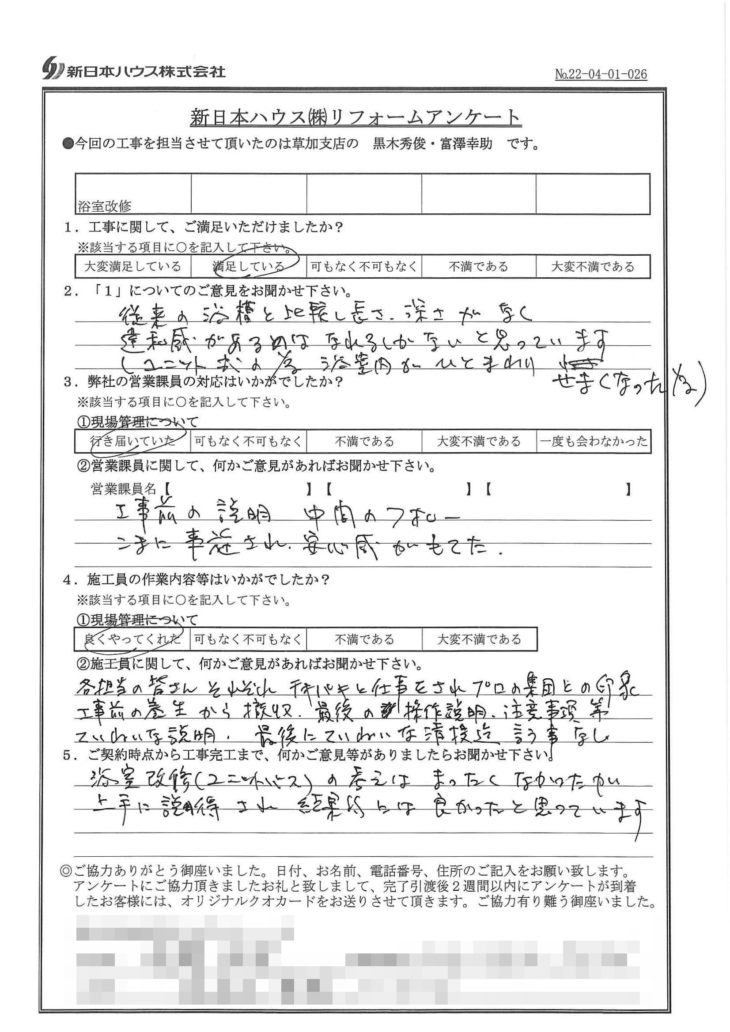 新日本ハウス株式会社
No.22-04-01-026
新日本ハウス㈱リフォームアンケート
●今回の工事を担当させて頂いたのは草加支店の 黒木秀俊・富澤幸助 です。
浴室改修
1．工事に関して、ご満足いただけましたか？
※該当する項目に○を記入して下さい。
大変満足している 満足している 可もなく不可もなく 不満である 大変不満である
2．「1」についてのご意見をお聞かせ下さい。
従来の浴槽と比較し長さ、深さがなく
違和感があるのはなれるしかないと思っています
(ユニット式の為 浴室内がひとまわり
せまくなった為)
3．弊社の営業課員の対応はいかがでしたか？
※該当する項目に○を記入して下さい。
①現場管理について
行き届いていた 可もなく不可もなく 不満である 大変不満である 一度も会わなかった
②営業課員に関して、何かご意見があればお聞かせ下さい。
営業課員名【 】【 】【 】
工事前の説明 中間のフォロー
こまに され、安心感がもてた.
4．施工員の作業内容等はいかがでしたか？
※該当する項目に○を記入して下さい。
①現場管理について
良くやってくれた 可もなく不可もなく 不満である 大変不満である
②施工員に関して、何かご意見があればお聞かせ下さい。
各担当の皆さんそれぞれテキパキと仕事をされプロの集団との印象
工事前の養生から撤収、最後の操作説明、注意事項等
ていねいな説明、最後にていねいな清掃迄 言う事なし
5．ご契約時点から工事完工まで、何かご意見等がありましたらお聞かせ下さい。
浴室改修(ユニットバス)の考えはまったくなかったが
上手に説得され 結果的には良かったと思っています
◎ご協力ありがとう御座いました。日付、お名前、電話番号、住所のご記入をお願い致します。
アンケートにご協力頂きましたお礼と致しまして、完了引渡後2週間以内にアンケートが到着
したお客様には、オリジナルクオカードをお送りさせて頂きます。ご協力有り難う御座いました。